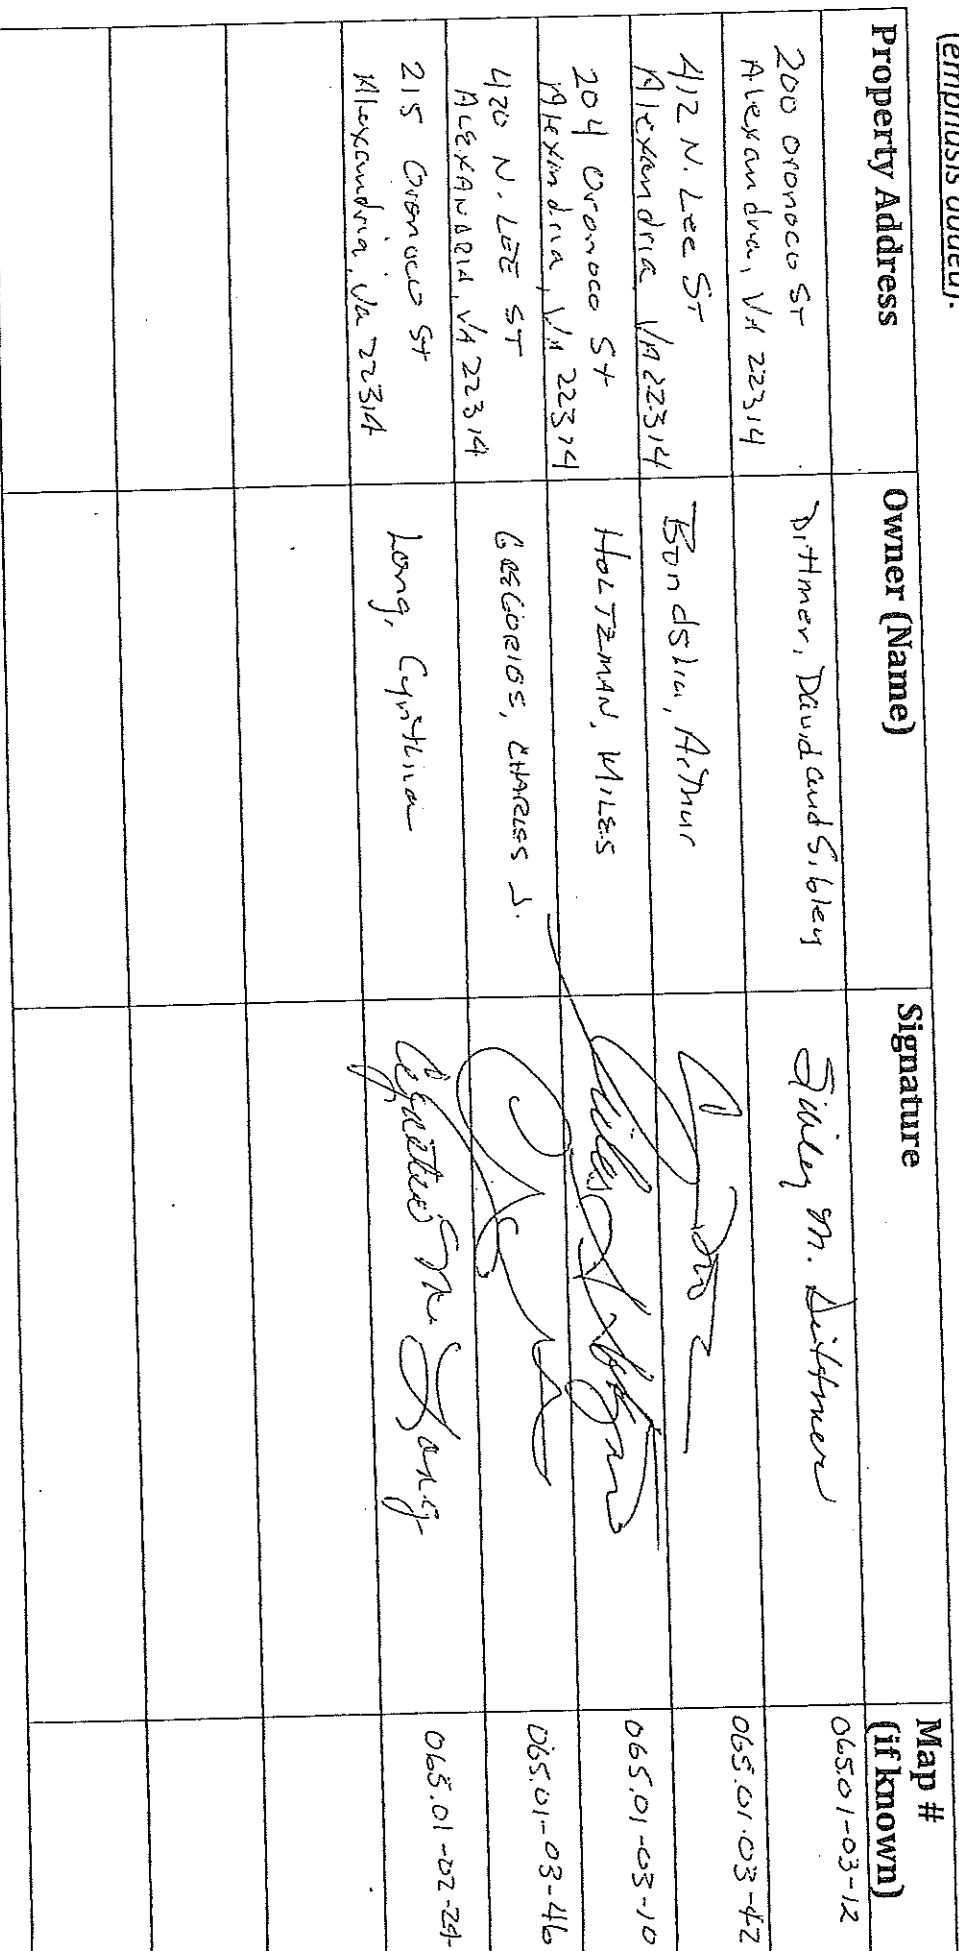 (emphasis added).
Property Address
Owner (Name)
Signature
Map #
(if known)
200 Oronoco ST
Alexandria, VA 22314
Dittmer, David and Sibley
Sibley M. Dittmer
065.01-03-12
412 N. Lee ST
Alexandria VA 22314
Bondshu, Arthur
065.01.03-42
204 Oronoco St
Alexandria, VA 22314
HOLTZMAN, MILES
065.01-03-10
420 N. LEE ST
ALEXANDRIA, VA 22314
GREGORIOS, CHARLES J.
065.01-03-46
215 Oronoco St
Alexandria, Va 22314
Long, Cynthia
Cynthia M. Long
065.01-02-24